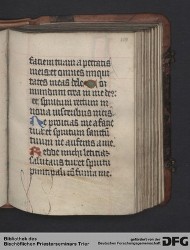 faciem tuam a peccatis
meis et omnes iniqui
tates meas dele Cor
mundum crea in me de
et spiritum rectum in
nova in visceribus meis
Ne proicias me a facie
tua et spiritum sanctū
tuum ne auferas a me
Redde michi leticiā
salutaris tui et spiritu
principali confirma me
Bibliothek des
Bischöflichen Priesterseminars Trier
gefördert von der
Deutschen Forschungsgemeinschaft
DFG